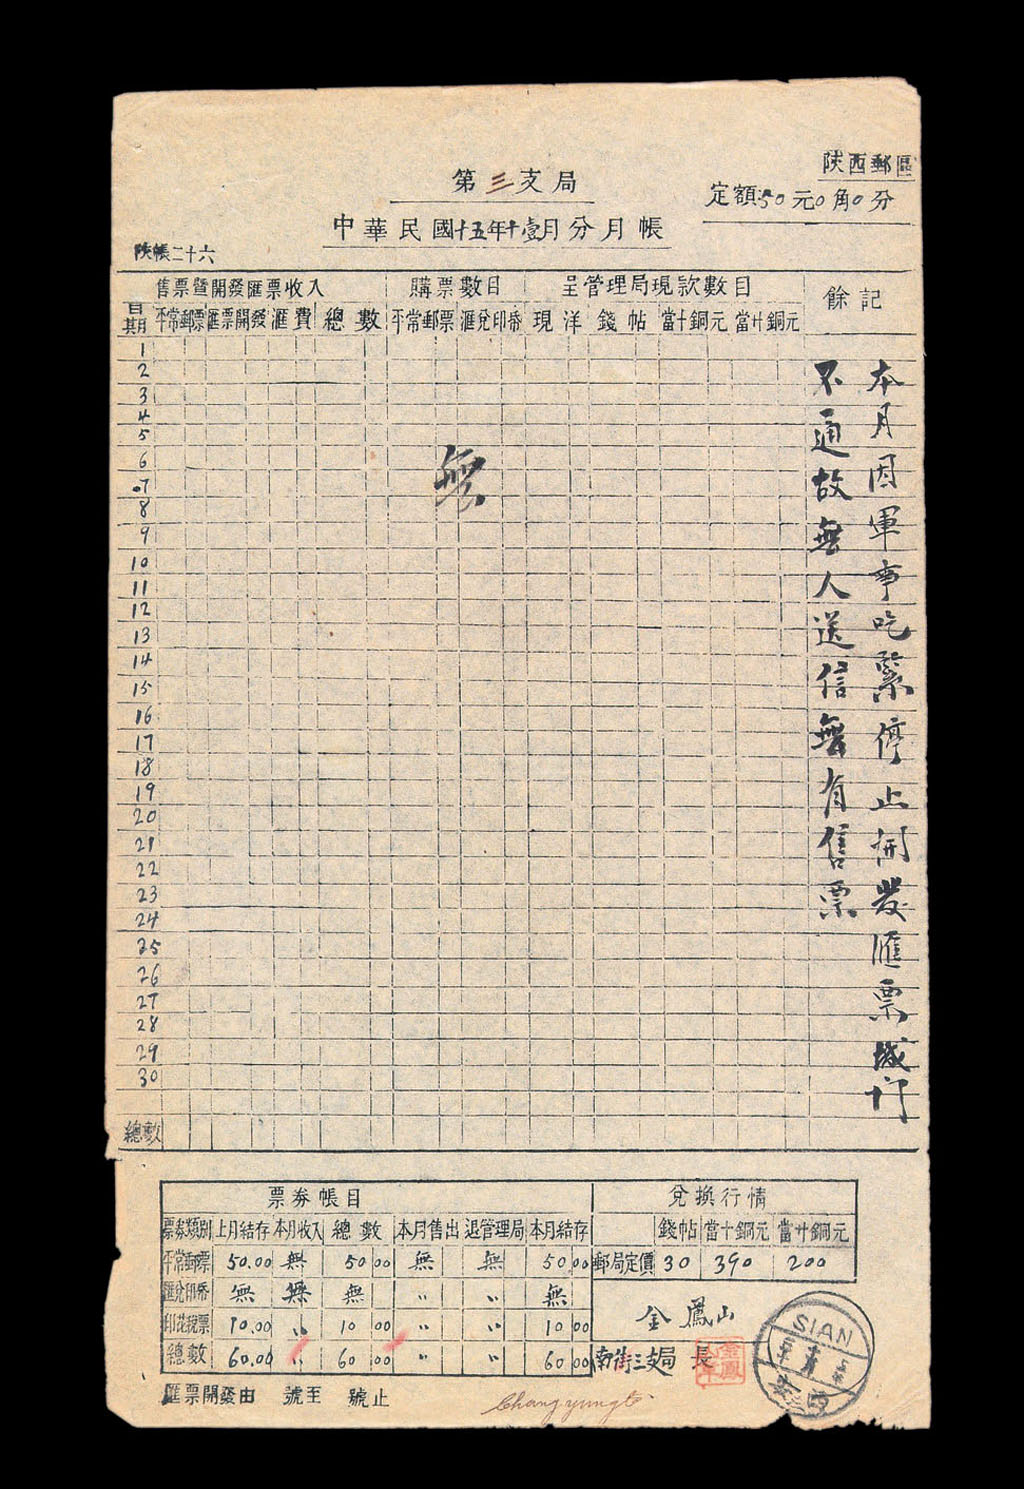 陕西郵區
第三支局
定額50元0角0分
中華民國十五年十壹月分月帳
陕帳二十六
售票暨開發匯票收入 購票數目 呈管理局現款數目 餘記
日期 平常郵票 匯票開發 滙費 總數 平常郵票 滙兌印帋 現洋 錢帖 當十銅元 當廿銅元
1
2
3
4
5
6
7
8
9
10
11
12
13
14
15
16
17
18
19
20
21
22
23
24
25
26
27
28
29
30
總數
無
本月因軍事吃緊停止開發匯票城门
不通故無人送信無有售票
票券帳目
票券類別 上月結存 本月收入 總數 本月售出 退管理局 本月結存
平常郵票 50.00 無 50 00 無 無 50 00
匯兌印帋 無 無 無 〃 〃 無
印花稅票 10.00 〃 10 00 〃 〃 10 00
總數 60.00 〃 60 00 〃 〃 60 00
匯票開發由 號至 號止
兌換行情
錢帖 當十銅元 當廿銅元
郵局定價 30 390 200
金鳳山
南街三支局長
SIAN
西安
Chang yungto